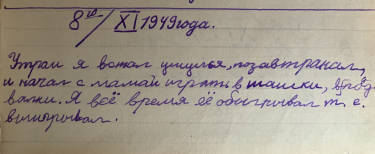 8го/XI 1949 года.
Утром я встал, позавтракал,
и начал с мамай играть в шашки, в подда
валки. Я всё время её обыгрывал т. е.
выигрывал.